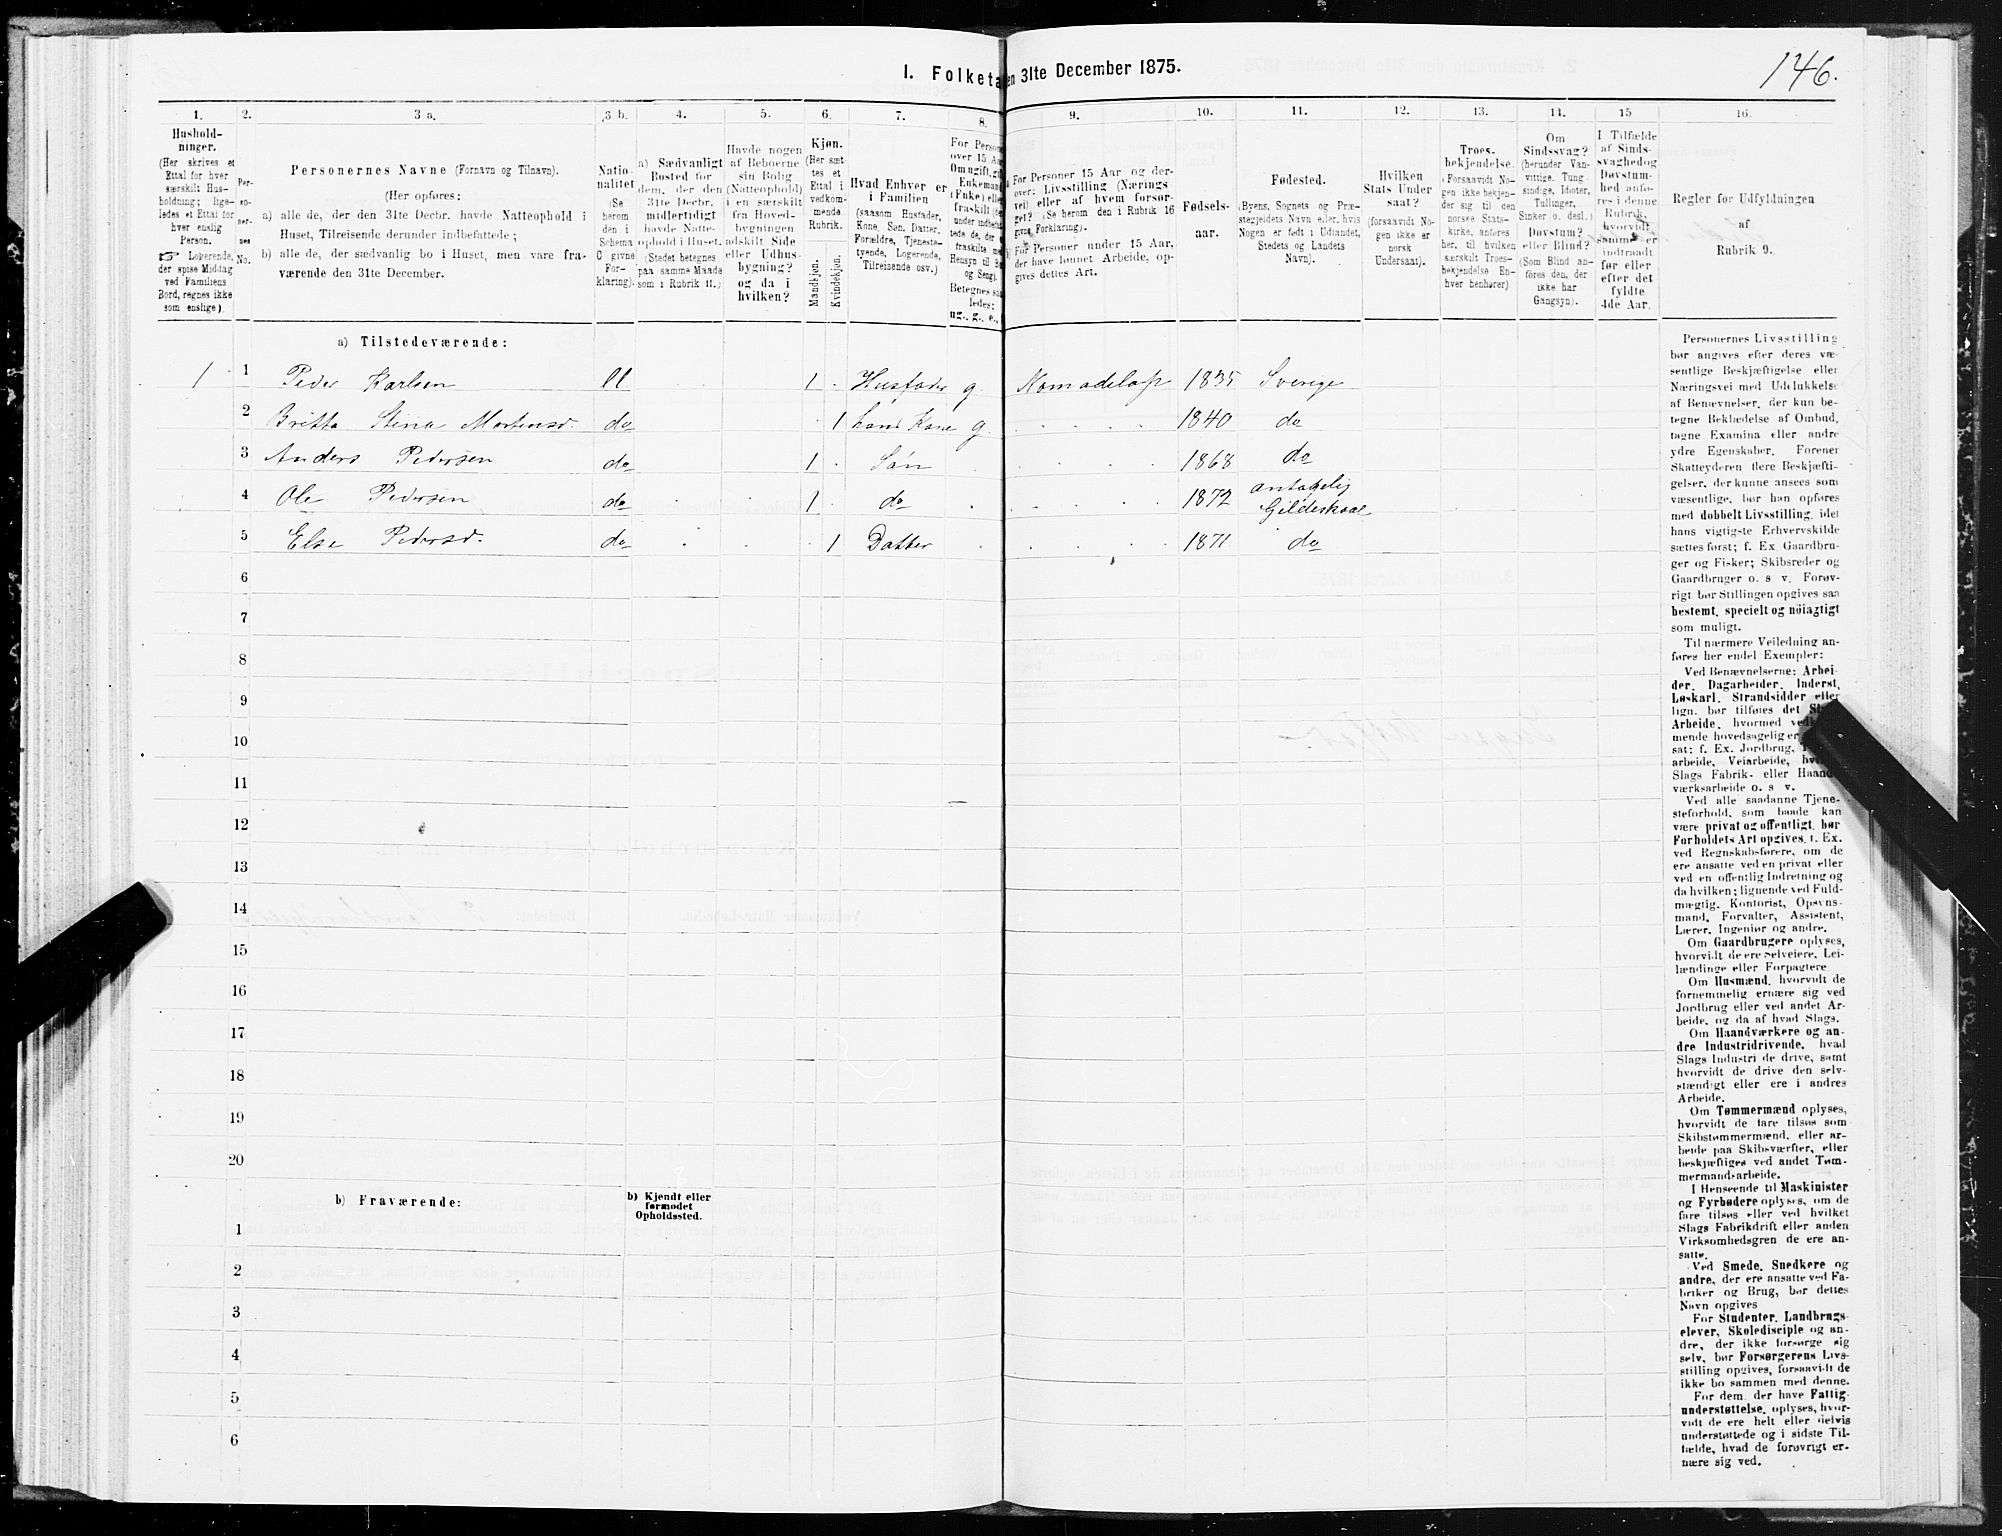 146.
I. Folketa en 31te December 1875.
1. 2. 3 a. 3 b. 4. 5. 6. 7. 8. 9. 10. 11. 12. 13. 14. 15 16.
Hushold-
ninger.
(Her skrives et
Ettal for hver
særskilt Hus-
holdning; lige-
ledes et Ettal for
hver enslig
Person.
☞ Logerende,
der spise Middag
ved Familiens
Bord, regnes ikke
som enslige)
Per-
so-
ner-
nes
No.
Personernes Navne (Fornavn og Tilnavn).
(Her opføres:
a) alle de, der den 31te Decbr. havde Natteophold i
Huset, Tilreisende derunder indbefattede;
b) alle de, der sædvanlig bo i Huset, men vare fra-
værende den 31te December.
Natio-
nalitet
(Se
herom
den i
Schema
C givne
For-
klaring).
a) Sædvanligt
Bosted for
dem, der den
31te Decbr.
midlertidigt
havde Natte-
ophold i Huset.
(Stedet betegnes
paa samme Maade
som i Rubrik 11.)
Havde nogen
af Beboerne
sin Bolig
(Natteophold)
i en særskilt
fra Hoved-
bygningen
adskilt Side
eller Udhus-
bygning?
og da i
hvilken?
Kjøn.
(Her sæt-
tes et
Ettal i
vedkom-
mende
Rubrik.
Mandkjøn.
Kvindekjøn.
Hvad Enhver er
i Familien
(saasom Husfader,
Kone, Søn, Datter,
Forældre, Tjeneste-
tyende, Logerende,
Tilreisende osv.)
For Person
over 15 Aa
Om ugift, gi
Enkemand
(Enke) elle
fraskilt
under indbefat-
tede de, der e
fraskilte m
Hensyn til B
og Seng).
Betegnes saa
ledes:
ug., g., e.,
For Personer 15 Aar og der-
over: Livsstilling (Nærings-
vei) eller af hvem forsør-
get? (Se herom den i Rubrik 16
givne Forklaring).
For Personer under 15 Aar,
der have lønnet Arbeide, op-
gives dettes Art.
Fødsels-
aar.
Fødested.
(Byens, Sognets og Præ-
stegjeldets Navn eller, hvis
Nogen er født i Udlandet,
Stedets og Landets
Navn).
Hvilken
Stats Under
saat?
(forsaavidt No-
gen ikke er
norsk
Undersaat).
Troes-
bekjendelse.
(Forsaavidt No-
gen ikke bekjen-
der sig til den
norske Stats-
kirke, anføres
her, til hvilken
særskilt Troes-
bekjendelse En-
hver henhører)
Om
Sindssvag?
(herunder Van-
vittige, Tung-
sindige, Idioter,
Tullinger,
Sinker o. desl.)
Døvstum?
eller Blind?
(Som Blind an-
føres den, der
ikke har
Gangsyn).
I Tilfælde
af Sinds-
svaghed og
Døvstum-
hed anfø-
res i denne
Rubrik,
hvorvidt
samme er
indtraadt
før eller
efter det
fyldte
4de Aar.
Regler for Udfyldningen
af
Rubrik 9.
a) Tilstedeværende:
1 1 Peder Karlsen ll 1 Husfader g. Nomadelap 1835 Sverige
2 Britta Stina Mortensd. do 1 hans Kone g 1840 do
3 Anders Pedersen do 1 Søn 1868 do
4 Ole Pedersen do 1 do 1872 antagelig Gildeskaal
5 Else Pedersd. do 1 Datter 1871 do
6
7
8
9
10
11
12
13
14
15
16
17
18
19
20
b) Fraværende:
b) Kjendt eller
formodet
Opholdssted.
1
2
3
4
5
6
Personernes Livsstilling
bør angives efter deres væ-
sentlige Beskjæftigelse eller
Næringsvei med Udelukkelse
af Benævnelser, der kun be-
tegne Beklædelse af Ombud,
tagne Examina eller andre
ydre Egenskaber. Forener
Skatteyderen flere Beskjæfti-
gelser, der kunne ansees som
væsentlige, bør han opføres
med dobbelt Livsstilling, idet
hans vigtigste Erhvervskilde
sættes først; f. Ex. Gaardbru-
ger og Fisker; Skibsreder og
Gaardbruger o. s v. Forøv-
rigt bør Stillingen opgives saa
bestemt, specielt og nöiagtigt
som muligt.
Til nærmere Veiledning an-
føres her endel Exempler:
Ved Benævnelserne: Arbei-
der, Dagarbeider, Inderst,
Løskarl, Strandsidder eller
lign. bør tilføies det Sl
Arbeide, hvormed ved
mende hovedsagelig er
sat; f. Ex. Jordbrug,
arbeide, Veiarbeide, hv
Slags Fabrik- eller Haand
værksarbeide o. s v.
Ved alle saadanne Tjene-
steforhold, som baade kan
være privat og offentligt, bør
Forholdets Art opgives, t. Ex.
ved Regnskabsførere, om de
ere ansatte ved en privat eller
ved en offentlig Indretning og
da hvilken; lignende ved Fuld-
mægtig, Kontorist, Opsyns-
mand, Forvalter, Assistent,
Lærer, Ingeniør og andre.
Om Gaardbrugere oplyses,
hvorvidt de ere Selveiere, Lei-
lændinge eller Forpagtere
Om Husmænd, hvorvidt de
fornemmelig ernære sig ved
Jordbrug eller ved andet Ar-
beide, og da af hvad Slags.
Om Haandværkere og an-
dre Industridrivende, hvad
Slags Industri de drive, samt
hvorvidt de drive den selv-
stændigt eller ere i andres
Arbeide.
Om Tømmermænd oplyses,
hvorvidt de fare tilsøs som
Skibstømmermænd, eller ar-
beide paa Skibsværfter, eller
beskjæftiges ved andet Tøm-
mermandsarbeide.
I Henseende til Maskinister
og Fyrbødere oplyses, om de
fare tilsøs eller ved hvilket
Slags Fabrikdrift eller anden
Virksomhedsgren de ere an-
satte.
Ved Smede, Snedkere og
andre, der ere ansatte ved Fa-
briker og Brug, bør dettes
Navn opgives
For Studenter, Landbrugs-
elever, Skoledisciple og an-
dre, der ikke forsørge sig
selv, bør Forsørgerens Livs-
stilling opgives, forsaavidt de
ikke bo sammen med denne.
For dem, der have Fattig-
understøttelse, oplyses, hvor-
vidt de ere helt eller delvis
understøttede og i sidste Til-
fælde, hvad de forøvrigt er-
nære sig ved.